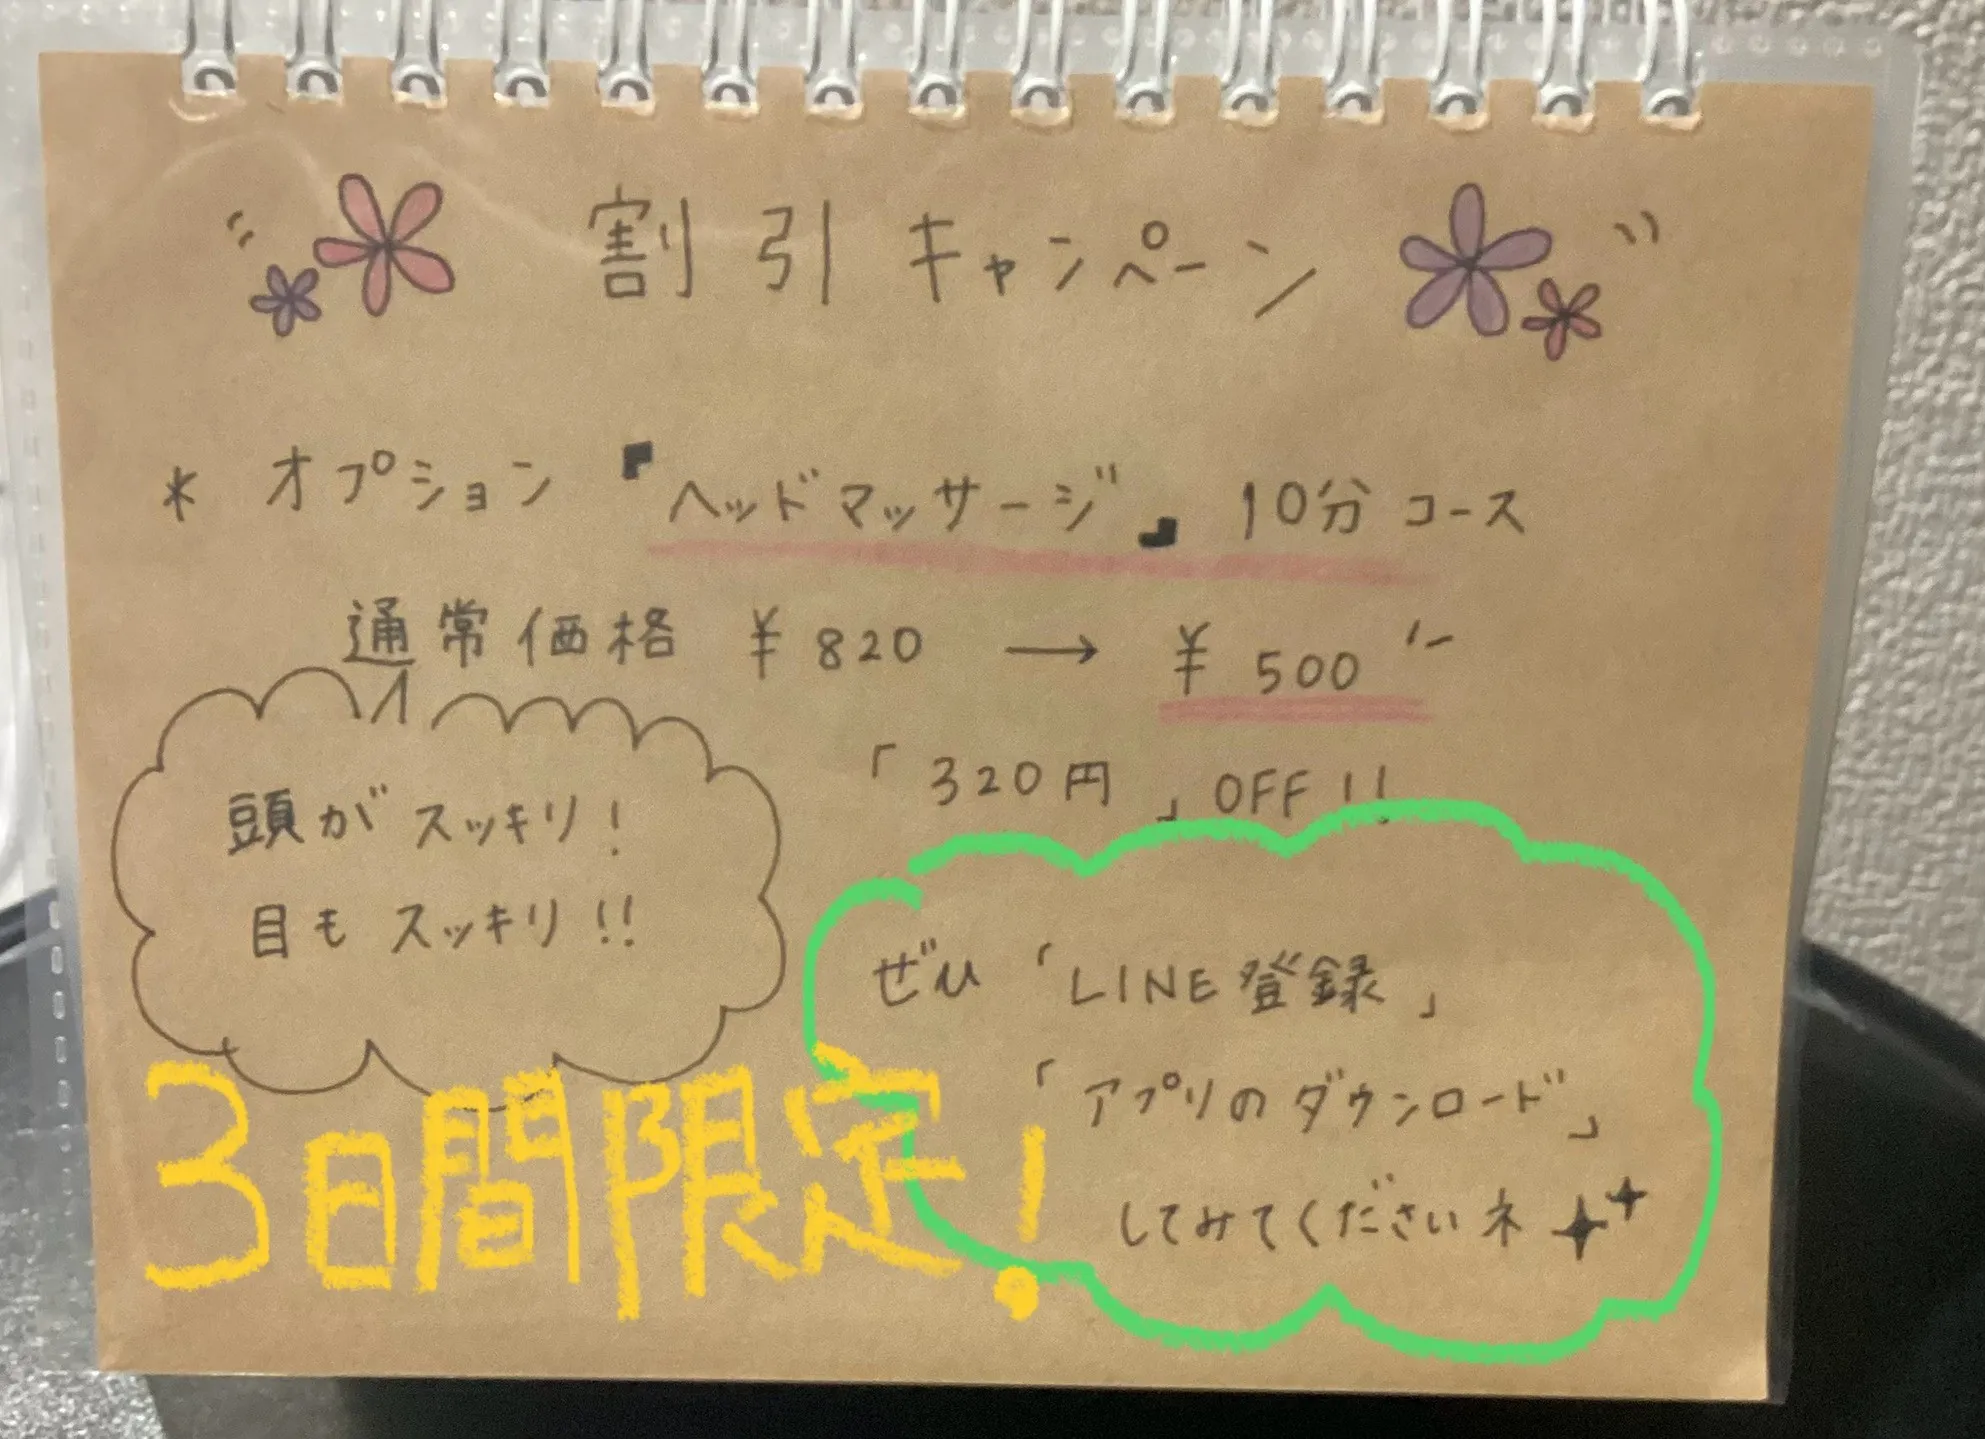 割引キャンペーン
* オプション『ヘッドマッサージ』10分コース
通常価格 ¥820 → ¥500
「320円」OFF!!
頭がスッキリ!
目もスッキリ!!
ぜひ「LINE登録」
「アプリのダウンロード」
してみてくださいネ
3日間限定!